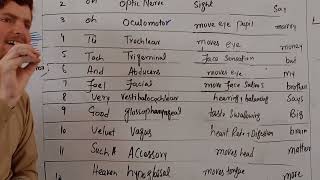 2 oh Optic Nerve Sight Say
3 oh Oculomotor move eye pupil money
4 Tu Trochlear moves eye money
5 Tach Trigeminal face Sensation but
6 And Abducens moves eye my
7 Feel Facial move face Salivas brother
8 Very vestibulocochlear hearing + balancing Says
9 Good glossopharyngeal taste Swallowing Big
10 Velvet Vagus heart Rate + Digestion brain
11 Such A Accessory moves head matter
Heaven Hypoglossal moves tongue more